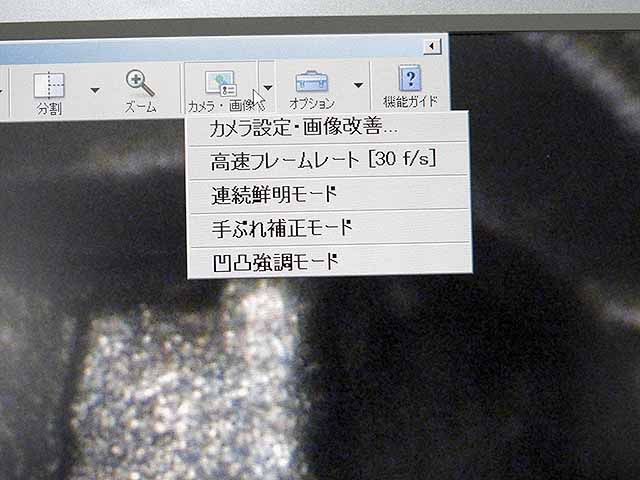 分割
ズーム
カメラ・画像
オプション
機能ガイド
カメラ設定・画像改善...
高速フレームレート [30 f/s]
連続鮮明モード
手ぶれ補正モード
凹凸強調モード